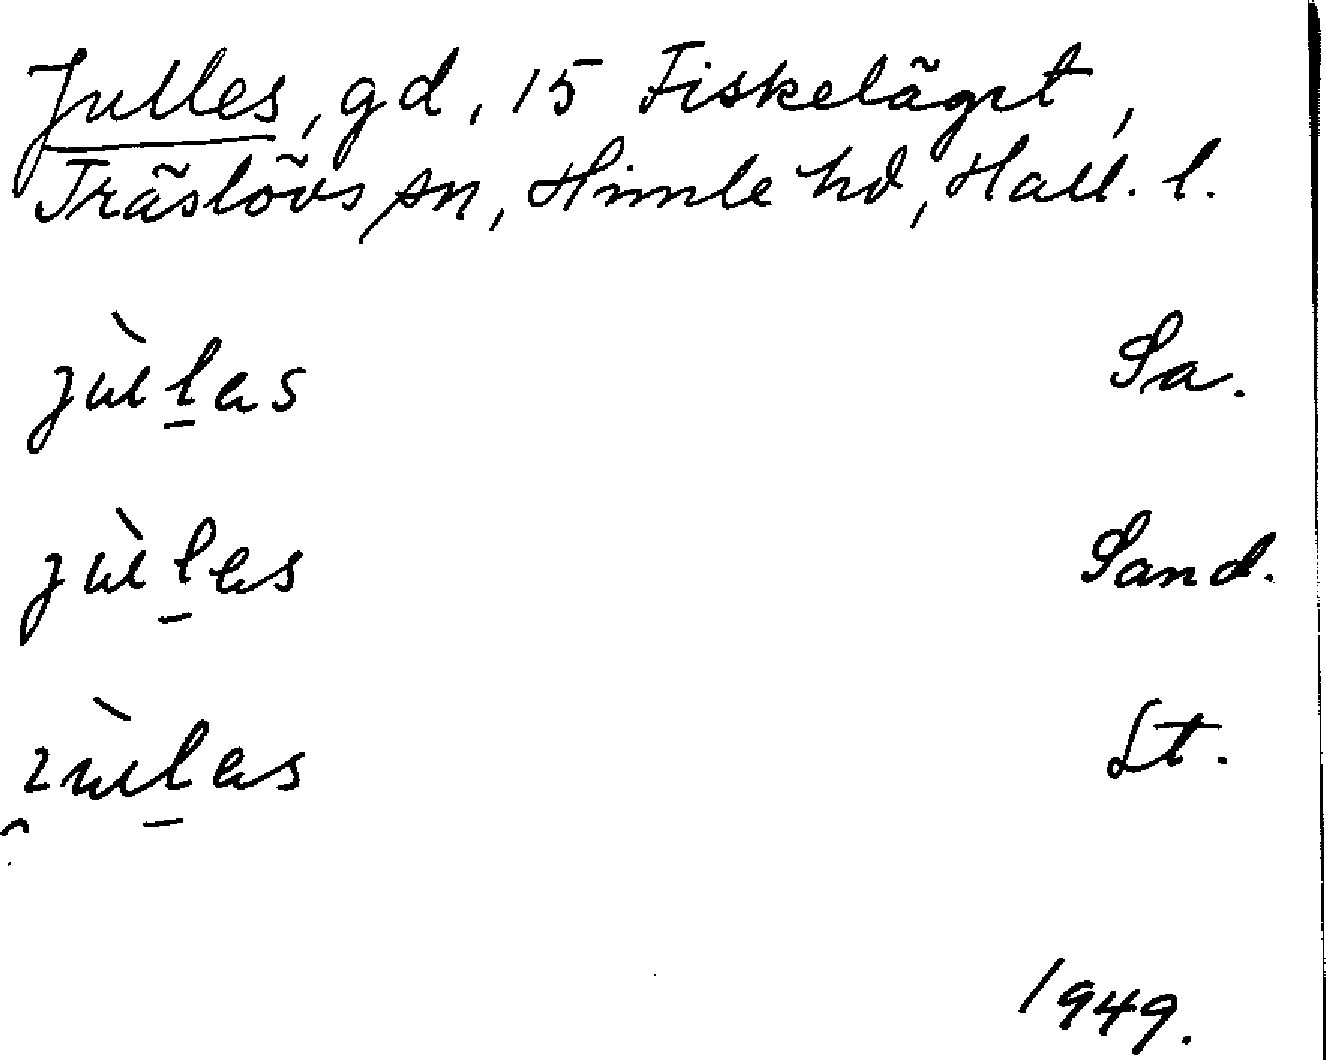 Julles, gd, 15 Fiskeläget,
Träslövs sn, Himle hd, Hall. l.
jùlas Sa.
jùlas Sand.
St.
1949.